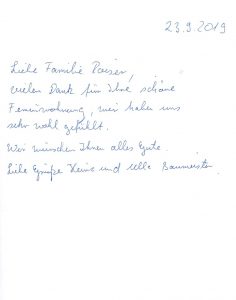 23.9.2019
Liebe Familie
vielen Dank für Ihre schöne
Ferienwohnung, wir haben uns
sehr wohl gefühlt.
Wir wünschen Ihnen alles Gute.
Liebe Grüße Heinz und Ulla Baumeister